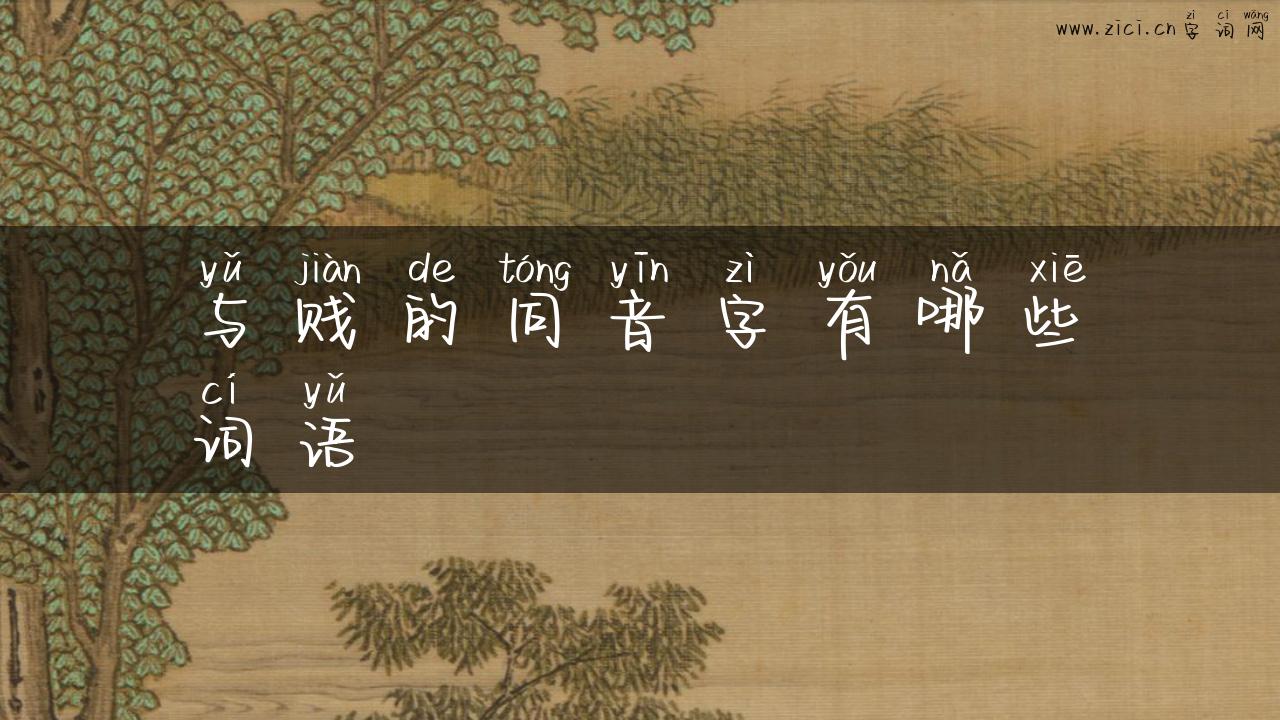 zì cí wǎng
www.zici.cn 字词网
yǔ jiàn de tóng yīn zì yǒu nǎ xiē
与贱的同音字有哪些
cí yǔ
词语